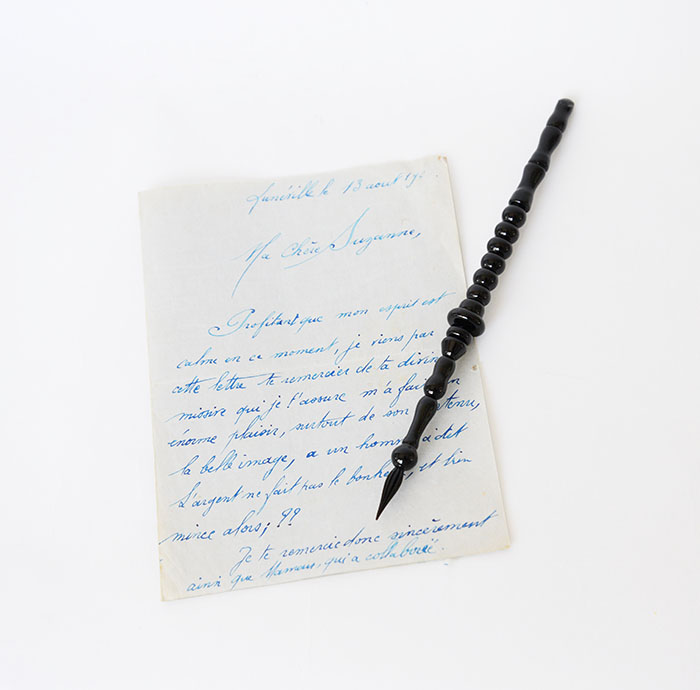 Lunéville le 13 aout 19
Ma Chère Suzanne,
Profitant que mon esprit est
calme en ce moment, je viens par
cette lettre te remercier de ta divine
missive qui je t'assure m'a fait un
énorme plaisir, surtout de son
la belle image, a un homme a dit
L'argent ne fait pas le bonheur, et bien
mince alors; ??
Je te remercie donc sincèrement
ainsi que Maman, qui a collaboré.